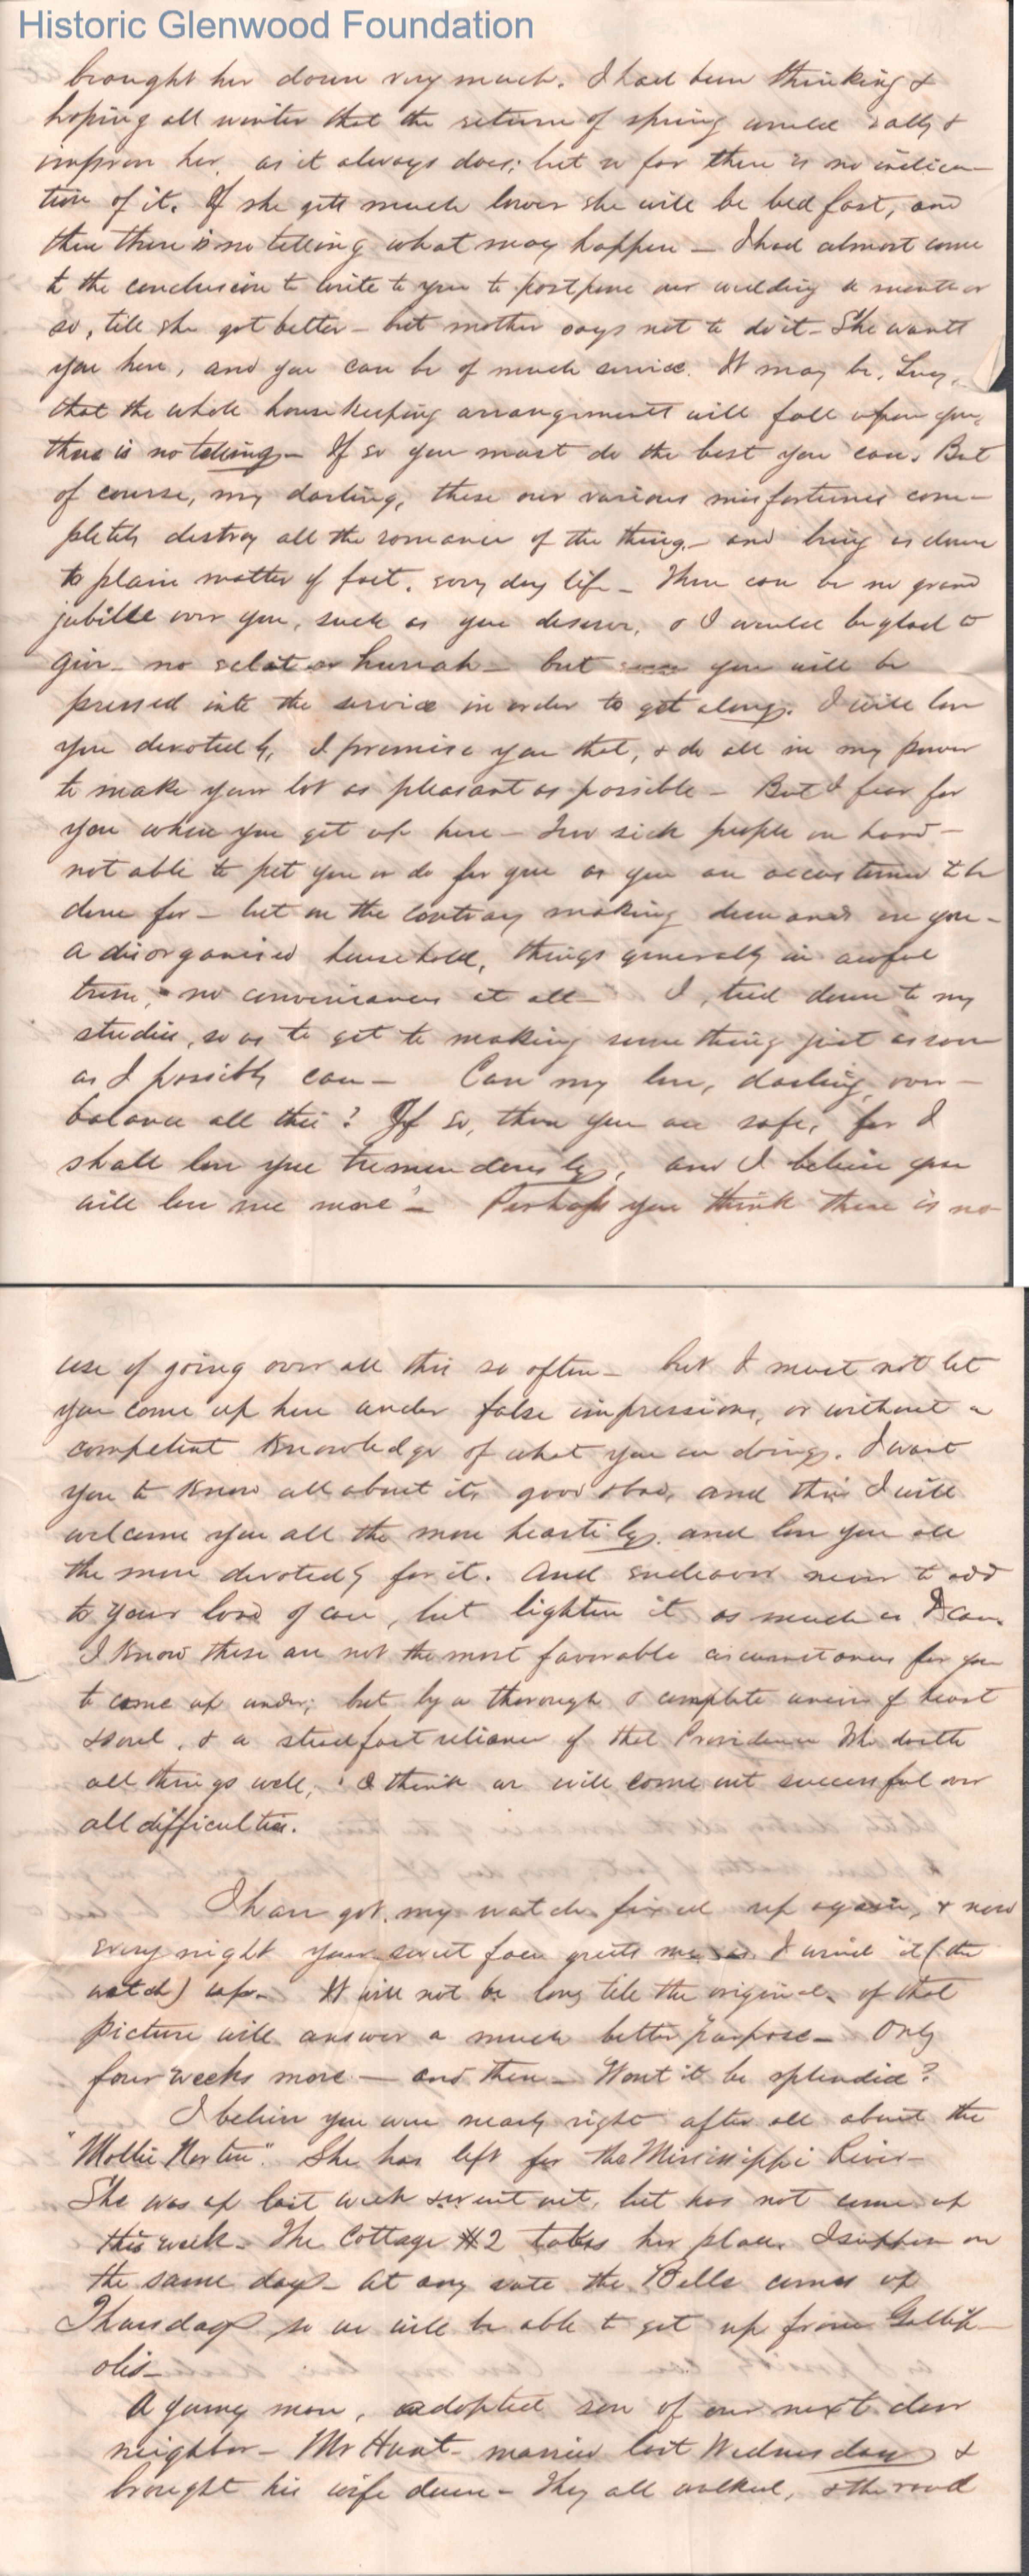 Historic Glenwood Foundation
brought her down very much. I had been thinking &
hoping all winter that the return of spring would rally &
improve her, as it always does; but so far there is no indica-
tion of it. If she gets much lower she will be bed fast, and
then there is no telling what may happen - I had almost come
to the conclusion to write to you to postpone our wedding a month or
so, till she got better - but mother says not to do it - She wants
you here, and you can be of much service. It may be, Lucy,
that the whole housekeeping arrangements will fall upon you,
there is no telling - If so you must do the best you can. But
of course, my darling, these our various misfortunes com-
pletely destroy all the romance of the thing - and bring us down
to plain matter of fact, every day life - There can be no grand
jubilee over you, such as you deserve, & I would be glad to
give - no eclat or hurrah - but you will be
pressed into the service in order to get along. I will love
you devotedly, I promise you that, & do all in my power
to make your lot as pleasant as possible - But I fear for
you when you get up here - Two sick people on hand -
not able to pet you or do for you as you are accustomed to be
done for - but on the contrary making demands on you -
a disorganised household, things generally in awful
trim, - no conveniences at all - I, tied down to my
studies, so as to get to making something just as soon
as I possibly can - Can my love, darling, over-
balance all this? If so, then you are safe, for I
shall love you tremendously, and I believe you
will love me more - Perhaps you think there is no
use of going over all this so often - but I must not let
you come up here under false impressions, or without a
competent knowledge of what you are doing. I want
you to know all about it, good & bad, and then I will
welcome you all the more heartily and love you all
the more devotedly for it. And endeavor never to add
to your load of care, but lighten it as much as I can.
I know these are not the most favorable circumstances for you
to come up under; but by a thorough & complete union of heart
& soul, & a steadfast reliance of that Providence Who doeth
all things well, I think we will come out successful over
all difficulties.
I have got my watch fixed up again, & now
every night your sweet face greets me as I wind it (the
watch) up. It will not be long till the original of that
picture will answer a much better purpose - Only
four weeks more - and then - Wont it be splendid?
I believe you were nearly right after all about the
"Mollie Norton". She has left for the Mississippi River -
She was up last week & went out, but has not come up
this week - The Cottage #2 takes her place, I suppose on
the same days - At any rate the Belle comes up
Thursdays so we will be able to get up from Gallip-
olis -
A young man, adopted son of our next door
neighbor - Mr Hunt - married last Wednesday &
brought his wife down - They all walked, & the road